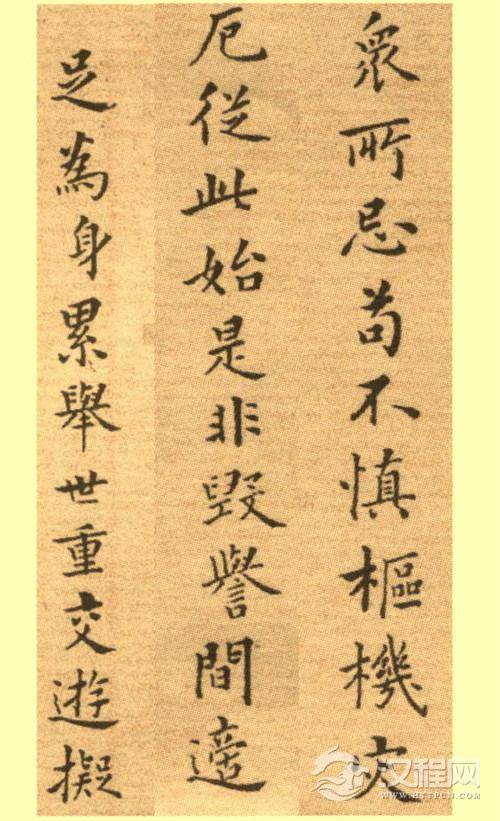 衆所忌苟不慎樞機灾
厄從此始是非毀譽間適
足為身累舉世重交遊擬
汉程网
WWW.HTTPCN.COM